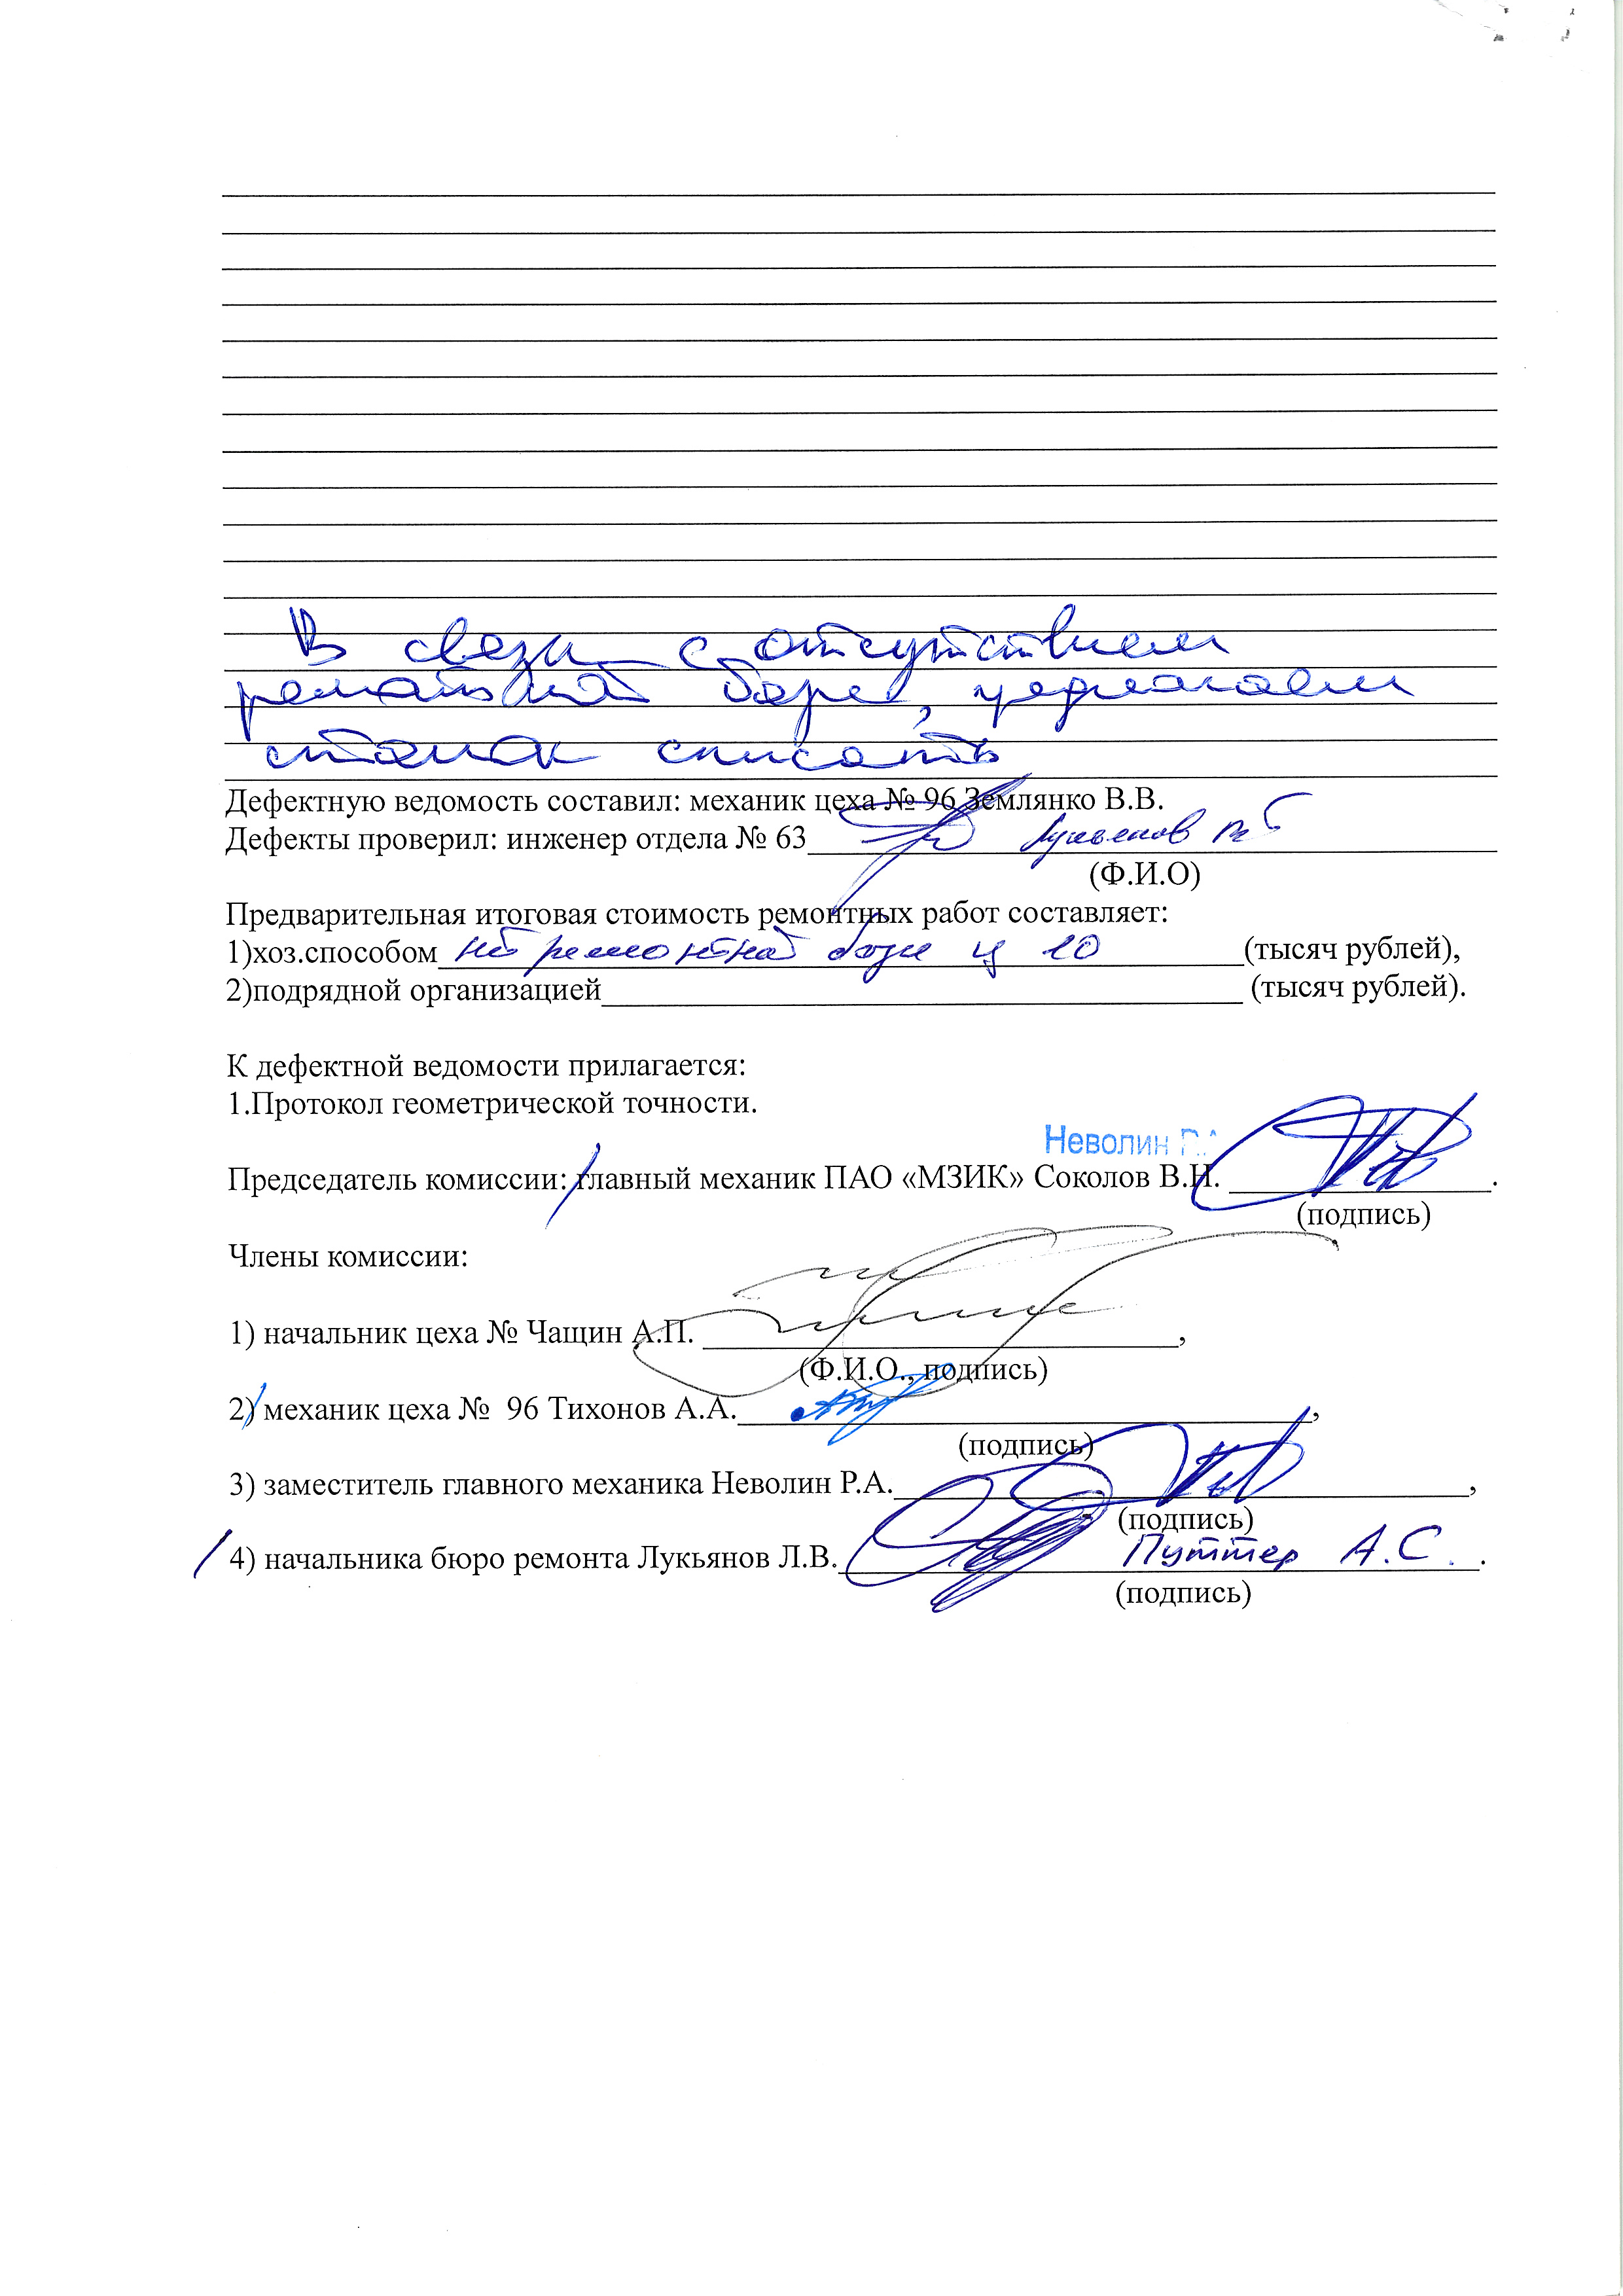 В связи с отсутствием
ремонтной базы, предлагаем
станок списать
Дефектную ведомость составил: механик цеха № 96 Землянко В.В.
Дефекты проверил: инженер отдела № 63 Лукьянов
(Ф.И.О)
Предварительная итоговая стоимость ремонтных работ составляет:
1)хоз.способом нет ремонтной базы ц 10 (тысяч рублей),
2)подрядной организацией (тысяч рублей).
К дефектной ведомости прилагается:
1.Протокол геометрической точности.
Неволин Р.А
Председатель комиссии: главный механик ПАО «МЗИК» Соколов В.Н. .
(подпись)
Члены комиссии:
1) начальник цеха № Чащин А.П. ,
(Ф.И.О., подпись)
2) механик цеха № 96 Тихонов А.А. ,
(подпись)
3) заместитель главного механика Неволин Р.А. ,
(подпись)
4) начальника бюро ремонта Лукьянов Л.В. Путтер А.С.
(подпись)